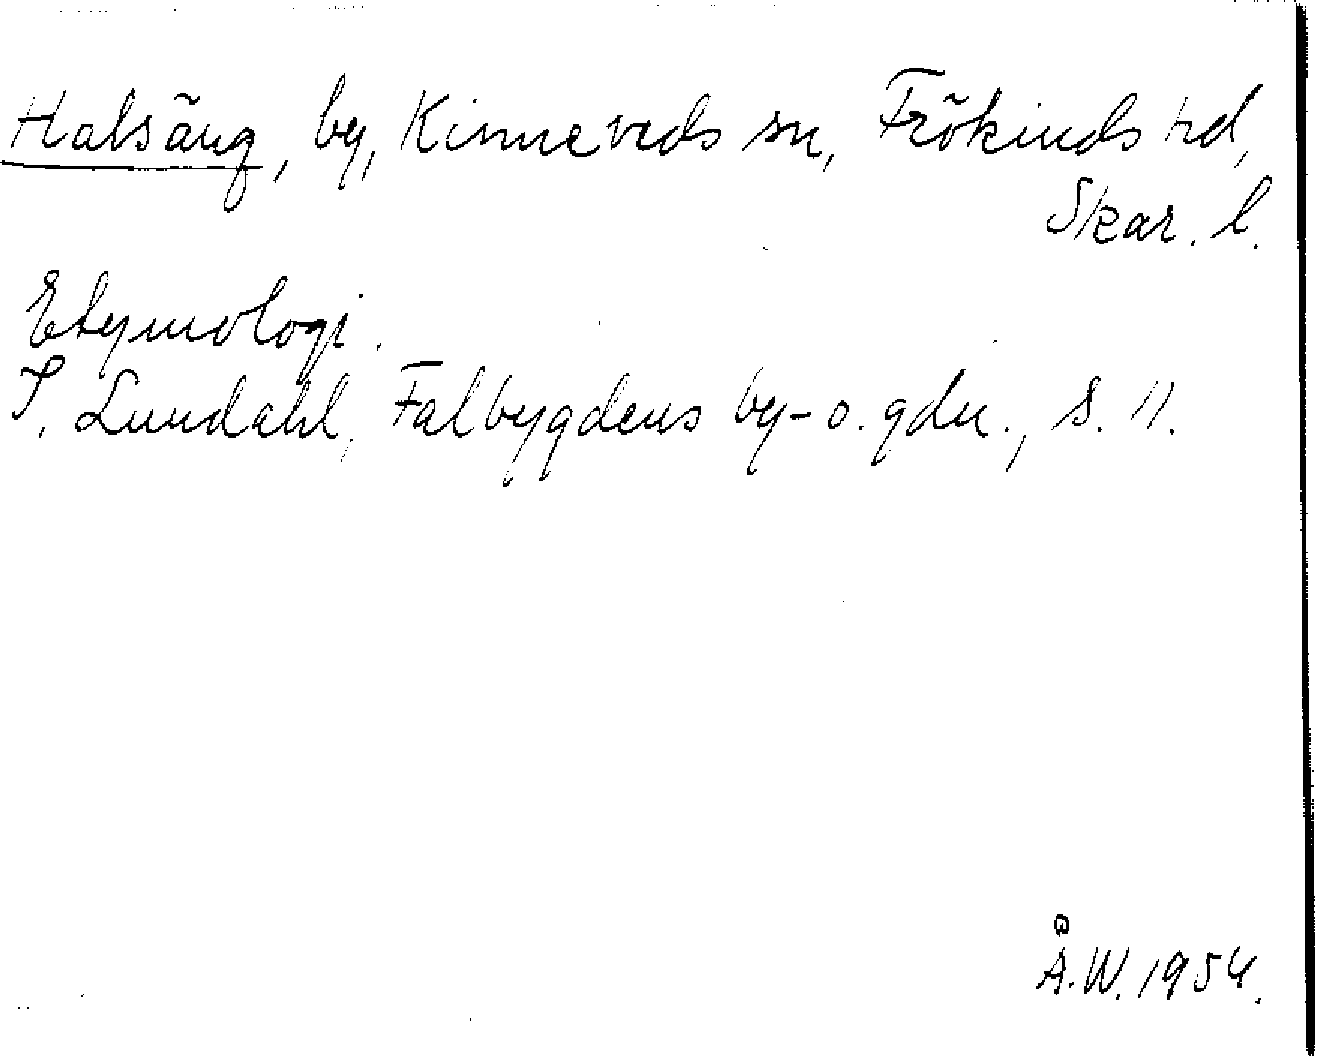 Halsäng, by, Kinneveds sn, Frökinds hd,
Skar. l.
Etymologi.
I. Lundahl, Falbygdens by- o. gdn., s. 11.
Å.W. 1954.